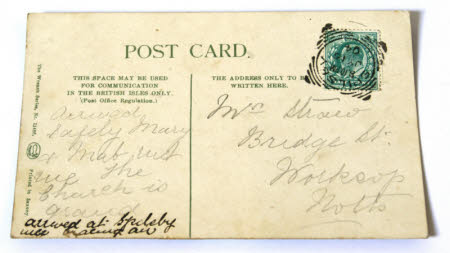 POST CARD.
THIS SPACE MAY BE USED
FOR COMMUNICATION
IN THE BRITISH ISLES ONLY.
(Post Office Regulation.)
THE ADDRESS ONLY TO BE
WRITTEN HERE.
The Wrench Series, No.
Printed in Saxony
arrived
Safely Mary
& Mab met
me The
Church is
grand
arrived at Spilsby
nice bracing air
Mr Straw
Bridge St.
Worksop
Notts